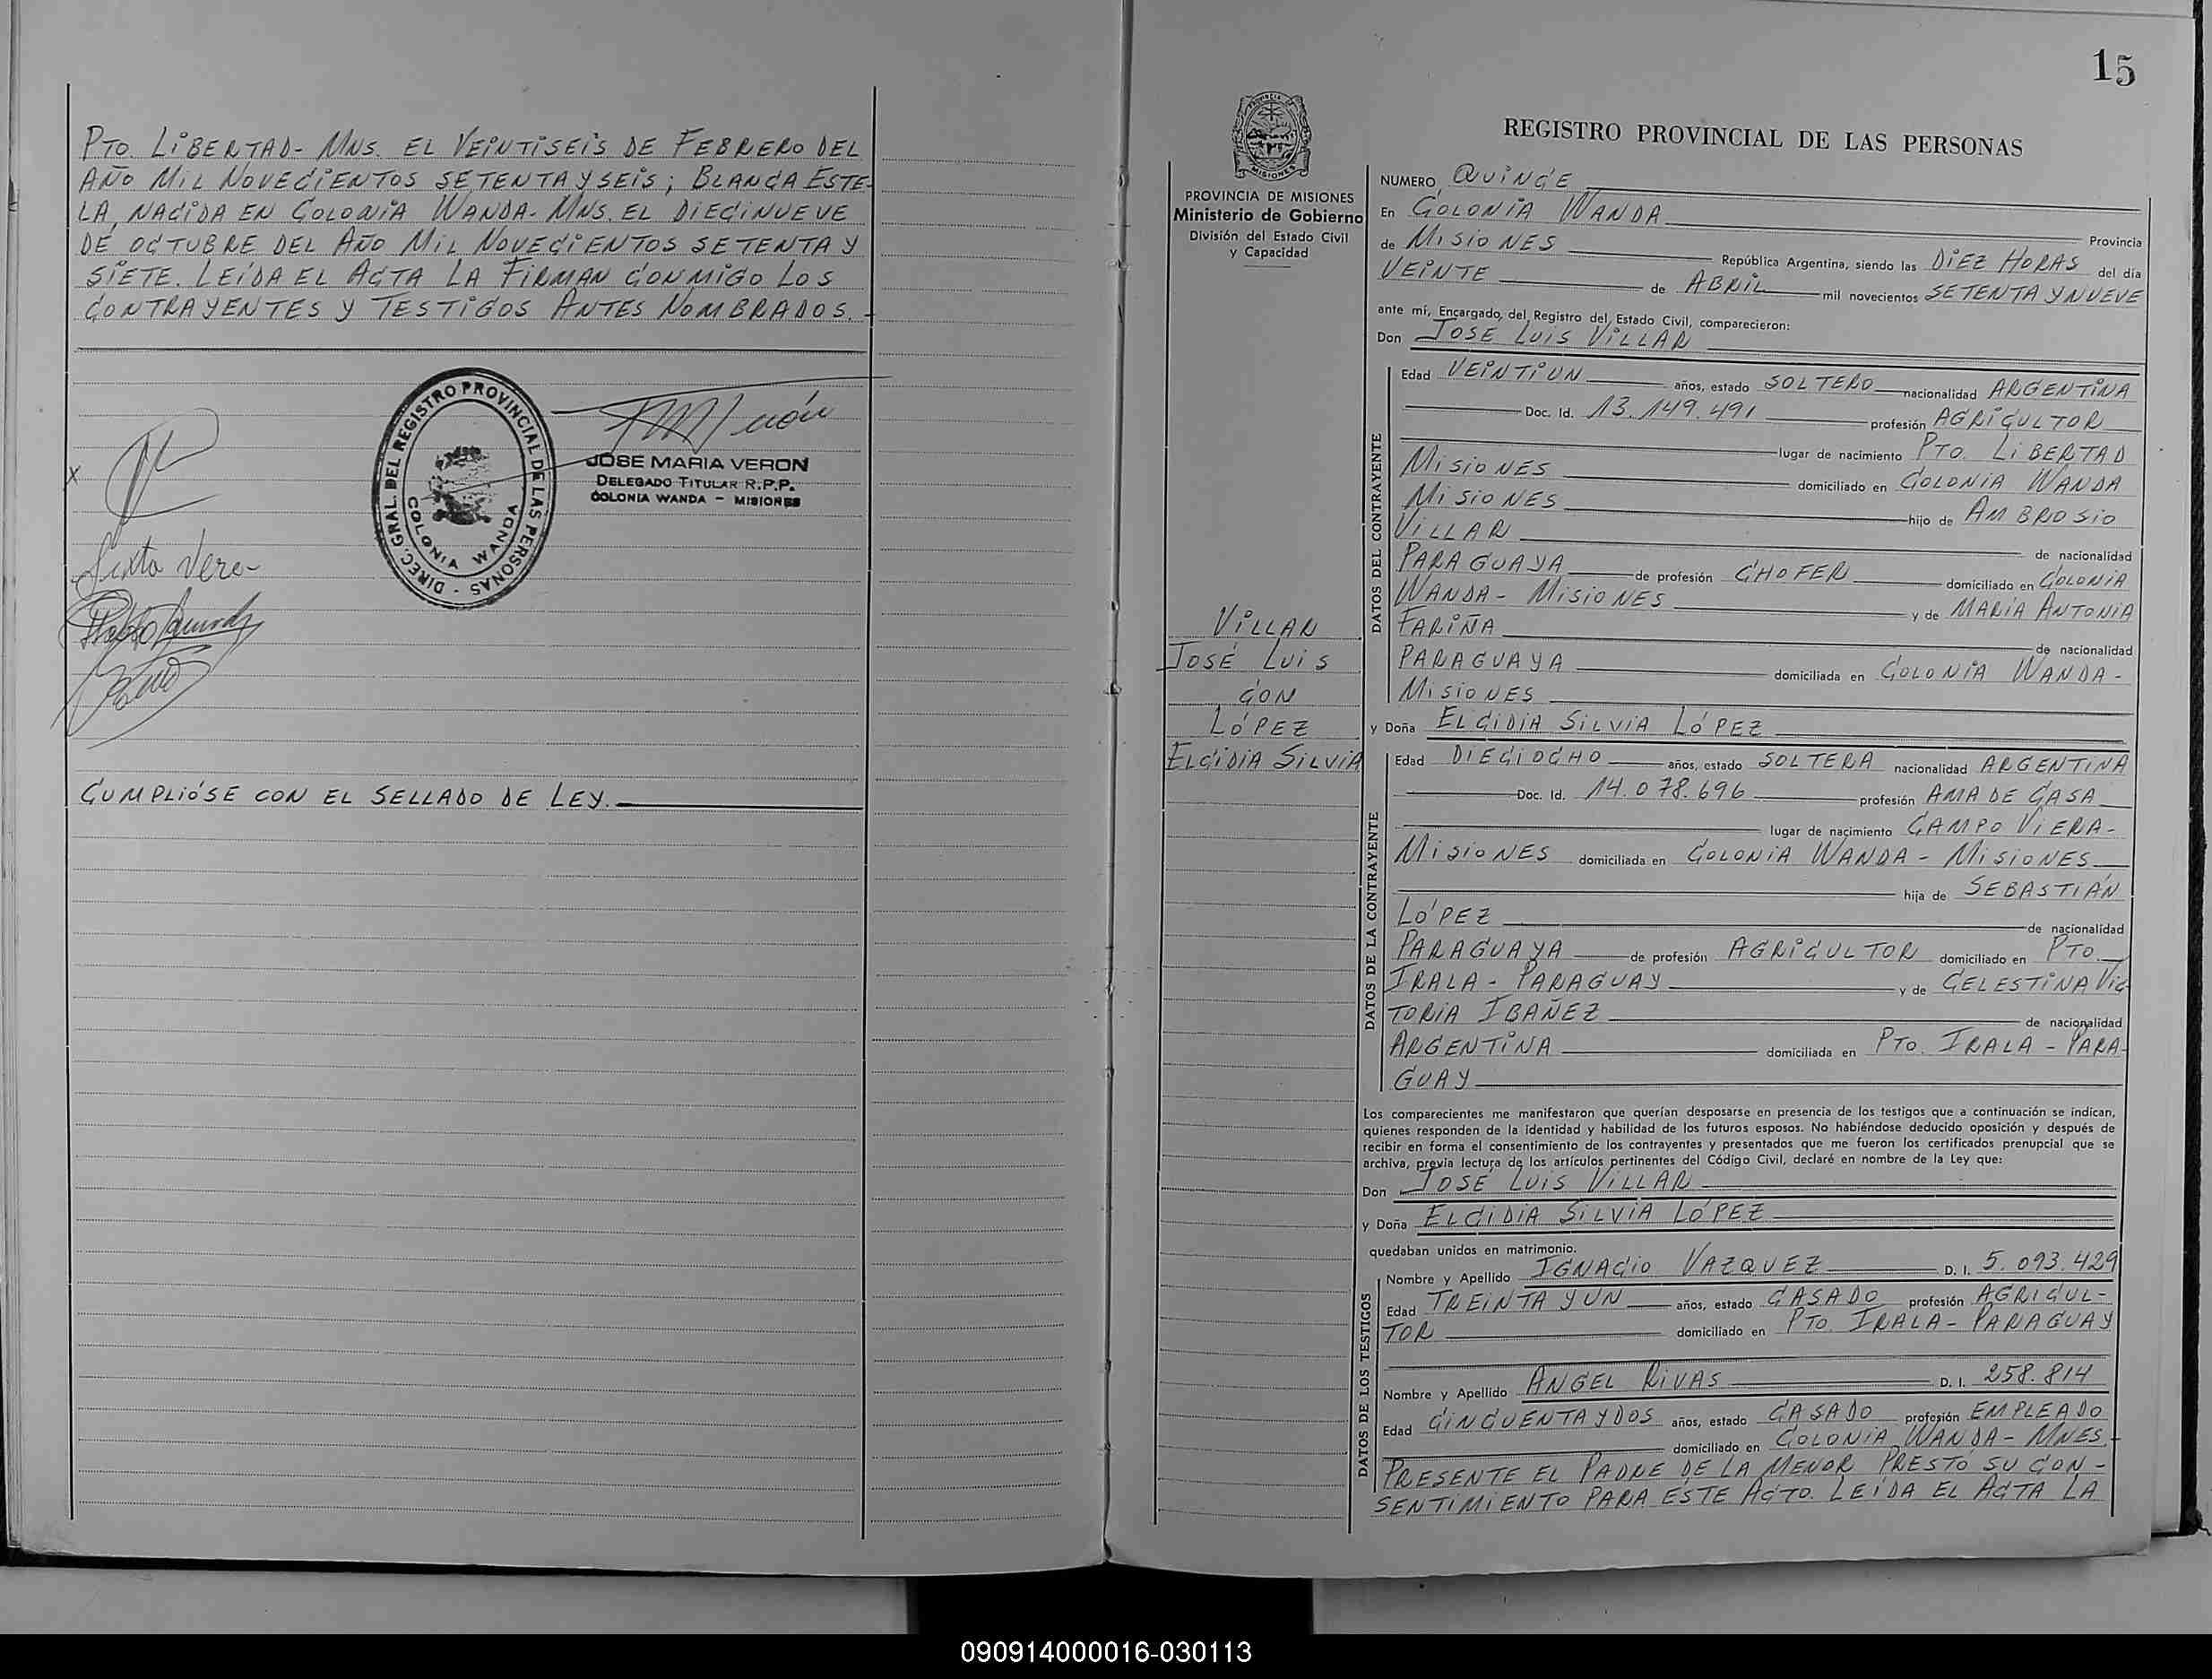 PTO. LIBERTAD - MNS. EL VEINTISEIS DE FEBRERO DEL
AÑO MIL NOVECIENTOS SETENTA Y SEIS; BLANCA ESTE-
LA, NACIDA EN COLONIA WANDA - MNS. EL DIECINUEVE
DE OCTUBRE DEL AÑO MIL NOVECIENTOS SETENTA Y
SIETE. LEÍDA EL ACTA LA FIRMAN CONMIGO LOS
CONTRAYENTES Y TESTIGOS ANTES NOMBRADOS.
DIREC. GRAL. DEL REGISTRO PROVINCIAL DE LAS PERSONAS
COLONIA WANDA
JOSE MARIA VERON
DELEGADO TITULAR R.P.P.
COLONIA WANDA - MISIONES
X
Sixto Vera
CUMPLIÓSE CON EL SELLADO DE LEY.
15
PROVINCIA DE MISIONES
Ministerio de Gobierno
División del Estado Civil
y Capacidad
VILLAR
JOSÉ LUIS
CON
LÓPEZ
ELCIDIA SILVIA
REGISTRO PROVINCIAL DE LAS PERSONAS
NUMERO QUINCE
En COLONIA WANDA Provincia
de MISIONES República Argentina, siendo las DIEZ HORAS del día
VEINTE de ABRIL mil novecientos SETENTA Y NUEVE
ante mí, Encargado del Registro del Estado Civil, comparecieron:
Don JOSÉ LUIS VILLAR
DATOS DEL CONTRAYENTE
Edad VEINTIUN años, estado SOLTERO nacionalidad ARGENTINA
Doc. Id. 13.149.491 profesión AGRICULTOR
lugar de nacimiento PTO. LIBERTAD
MISIONES domiciliado en COLONIA WANDA
MISIONES hijo de AMBROSIO
VILLAR de nacionalidad
PARAGUAYA de profesión CHOFER domiciliado en COLONIA
WANDA - MISIONES y de MARIA ANTONIA
FARIÑA de nacionalidad
PARAGUAYA domiciliada en COLONIA WANDA -
MISIONES
y Doña ELCIDIA SILVIA LÓPEZ
DATOS DE LA CONTRAYENTE
Edad DIECIOCHO años, estado SOLTERA nacionalidad ARGENTINA
Doc. Id. 14.078.696 profesión AMA DE CASA
lugar de nacimiento CAMPO VIERA -
MISIONES domiciliada en COLONIA WANDA - MISIONES
hija de SEBASTIÁN
LÓPEZ de nacionalidad
PARAGUAYA de profesión AGRICULTOR domiciliado en PTO.
IRALA - PARAGUAY y de CELESTINA VIC
TORIA IBAÑEZ de nacionalidad
ARGENTINA domiciliada en PTO. IRALA - PARA-
GUAY
Los comparecientes me manifestaron que querían desposarse en presencia de los testigos que a continuación se indican,
quienes responden de la identidad y habilidad de los futuros esposos. No habiéndose deducido oposición y después de
recibir en forma el consentimiento de los contrayentes y presentados que me fueron los certificados prenupcial que se
archiva, previa lectura de los artículos pertinentes del Código Civil, declaré en nombre de la Ley que:
Don JOSÉ LUIS VILLAR
y Doña ELCIDIA SILVIA LÓPEZ
quedaban unidos en matrimonio.
DATOS DE LOS TESTIGOS
Nombre y Apellido IGNACIO VAZQUEZ D. I. 5.093.429
Edad TREINTA Y UN años, estado CASADO profesión AGRICUL-
TOR domiciliado en PTO. IRALA - PARAGUAY
Nombre y Apellido ANGEL RIVAS D. I. 258.814
Edad CINCUENTA Y DOS años, estado CASADO profesión EMPLEADO
domiciliado en COLONIA WANDA - MNES.
PRESENTE EL PADRE DE LA MENOR PRESTÓ SU CON-
SENTIMIENTO PARA ESTE ACTO. LEÍDA EL ACTA LA
090914000016-030113